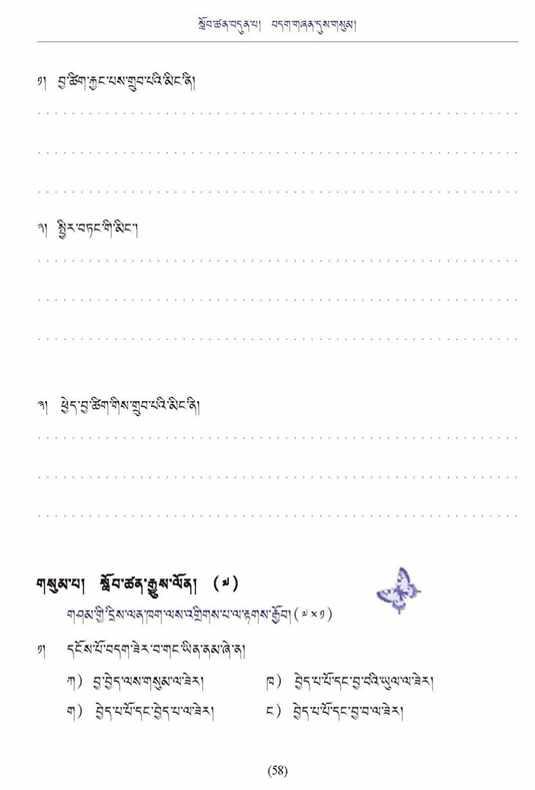 སློབ་ཚན་བདུན་པ། བདག་གཞན་དུས་གསུམ།
༡། བྱ་ཚིག་རྐྱང་པས་གྲུབ་པའི་མིང་ནི།
༢། སྤྱིར་བཏང་གི་མིང་།
༣། ཕྱེད་བྱ་ཚིག་གིས་གྲུབ་པའི་མིང་ནི།
གསུམ་པ། སློབ་ཚན་རྒྱུས་ལོན། (༧)
གཤམ་གྱི་དྲིས་ལན་ཁག་ལས་འགྲིགས་པ་ལ་རྟགས་རྒྱོབ། (༧×༡)
༡། དངོས་པོ་བདག་ཟེར་བ་གང་ཡིན་ནམ་ཞེ་ན།
ཀ) བྱ་བྱེད་ལས་གསུམ་ལ་ཟེར། ཁ) བྱེད་པ་པོ་དང་བྱ་བའི་ཡུལ་ལ་ཟེར།
ག) བྱེད་པ་པོ་དང་བྱེད་པ་ལ་ཟེར། ང) བྱེད་པ་པོ་དང་བྱ་བ་ལ་ཟེར།
(58)